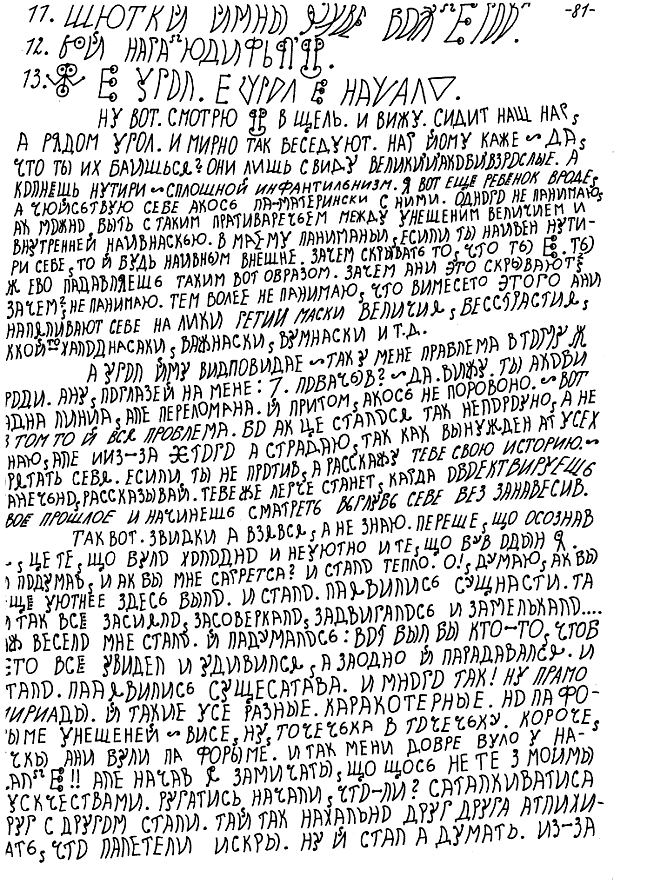 -81-
11. ЩЮТКИ ИМНЫ
12. НАГА
13. Е УГОЛ. Е УГОЛ Е НАЧАЛ
НУ ВОТ. СМОТРЮ В ЩЕЛЬ. И ВИЖУ. СИДИТ НАШ НАГ,
А РЯДОМ УГОЛ. И МИРНО ТАК БЕСЕДУЮТ. НАГ ЙОМУ КАЖЕ ~ ДА,
ЧТО ТЫ ИХ БАИШЬСЯ? ОНИ ЛИШЬ С ВИДУ ВЕЛИКИИ АКОБИ ВЗРОСЛЫЕ. А
КОПНЕШЬ НУТИРИ ~ СПЛОШНОЙ ИНФАНТИЛЬНИЗМ. Я ВОТ ЕЩЕ РЕБЕНОК ВРОДЕ,
А ЧЮЙСЬТВУЮ СЕБЕ АКОСЬ ПА-МАТЕРИНСКИ С НИМИ. ОДНОГО НЕ ПАНИМАЮ,
АК МОЖНО БЫТЬ С ТАКИМ ПРАТИВАРЕЧЬЕМ МЕЖДУ УНЕШЕНИМ ВЕЛИЧИЕМ И
ВНУТРЕННЕЙ НАИВНАСЬКЮ. В МАЕМУ ПАНИМАНЬИ, ЕСИЛИ ТЫ НАИВЕН НУТИ-
РИ СЕБЕ, ТО Й БУДЬ НАИВНЫМ ВНЕШНЕ. ЗАЧЕМ СКРЫВАТЬ ТО, ЧТО ТЫ Е. ТЫ
Ж ЕВО ПАДАВЛЯЕШЬ ТАКИМ ВОТ ОБРАЗОМ. ЗАЧЕМ АНИ ЭТО СКРЫВАЮТ?
ЗАЧЕМ?, НЕ ПАНИМАЮ. ТЕМ БОЛЕЕ НЕ ПАНИМАЮ, ЧТО ВИМЕСЕТО ЭТОГО АНИ
НАПЯЛИВАЮТ СЕБЕ НА ЛИКИ ГЕТИИ МАСКИ ВЕЛИЧИЯ, БЕССТРАСТИЯ,
ХАЛОДНАСАКИ, ВАЖНАСКИ, ВУМНАСКИ И Т.Д.
А УГОЛ ЙМУ ВИДПОВИДАЕ ~ ТАК У МЕНЕ ПРАБЛЕМА В ТОМУ Ж
РОДИ. АНУ, ПОГЛАЗЕЙ НА МЕНЕ: 7. ПОБАЧЫВ? ~ ДА. ВИЖУ. ТЫ АКОБИ
АДНА ЛИНИЯ, АЛЕ ПЕРЕЛОМАНА. Й ПРИТОМ, АКОСЬ НЕ ПОРОВОНО. ~ ВОТ
В ТОМ ТО Й ВСЯ ПРОБЛЕМА. БО АК ЦЕ СТАЛОСЯ ТАК НЕПОРОУНО, А НЕ
НАЮ, АЛЕ ИИЗ-ЗА ЭТОГО А СТРАДАЮ, ТАК КАК ВЫНУЖДЕН АТ УСЕХ
РЕТАТЬ СЕБЯ. ЕСИЛИ, ТЫ НЕ ПРОТИВ, А РАССКАЖУ ТЕБЕ СВОЮ ИСТОРИЮ. ~
АНЕЧЬНО, РАССКАЗЫВАЙ. ТЕБЕ ЖЕ ЛЕГЧЕ СТАНЕТ, КАГДА
ВОЕ ПРОШЛОЕ И НАЧИНЕШЬ СМАТРЕТЬ ВЬГЛУБЬ СЕБЕ БЕЗ ЗАНАВЕСИВ.
ТАК ВОТ. ЗВИДКИ А ВЗЯВСЯ, А НЕ ЗНАЮ. ПЕРШЕ, ЩО ОСОЗНАВ
, ЦЕ ТЕ, ЩО БУЛО ХОЛОДНО И НЕУЮТНО И ТЕ, ЩО БУВ ОДЫН Я.
ПОДУМАВ, И АК БЫ МНЕ САГРЕТСА? И СТАЛО ТЕПЛО. О!, ДУМАЮ, АК БЫ
ЩЕ УЮТНЕЕ ЗДЕСЬ БЫЛО. И СТАЛО. ПАЯВИЛИСЬ СУЩНАСТИ. ТА
ТАК ВСЕ ЗАСИЯЛО, ЗАСОВЕРКАЛО, ЗАДВИГАЛОСЬ И ЗАМЕЛЬКАЛО....
АЖ ВЕСЕЛО МНЕ СТАЛО. Й ПАДУМАЛОСЬ: ВОТ БЫЛ БЫ КТО-ТО, ЧТОБ
ЕТО ВСЁ УВИДЕЛ И УДИВИЛСЯ, А ЗАОДНО Й ПАРАДАВАЛСЯ. И
СТАЛО. ПАЯВИЛИСЬ СУЩЕСАТАВА. И МНОГО ТАК! НУ ПРЯМО
МИРИАДЫ. Й ТАКИЕ УСЕ РАЗНЫЕ. КАРАКОТЕРНЫЕ. НО ПА ФО-
РЫМЕ УНЕШЕНЕЙ ~ ВИСЕ, НУ, ТОЧЕЧЬКА В ТОЧЕЧЬКУ. КОРОЧЕ,
ЧКЫ АНИ БУЛИ ПА ФОРЫМЕ. И ТАК МЕНИ ДОБРЕ БУЛО У НА-
!! АЛЕ НАЧАВ Я ЗАМИЧАТЫ, ЩО ЩОСЬ НЕ ТЕ З МОИМЫ
УСКЧЕСТВАМИ. РУГАТИСЬ НАЧАЛИ, ЧТО-ЛИ? САТАЛКИВАТИСА
РУГ С ДРУГОМ СТАЛИ. ТАЙ ТАК НАХАЛЬНО ДРУГ ДРУГА АТПИХИ-
АТЬ, ЧТО ПАЛЕТЕЛИ ИСКРЫ. НУ Й СТАЛ А ДУМАТЬ. ИЗ-ЗА